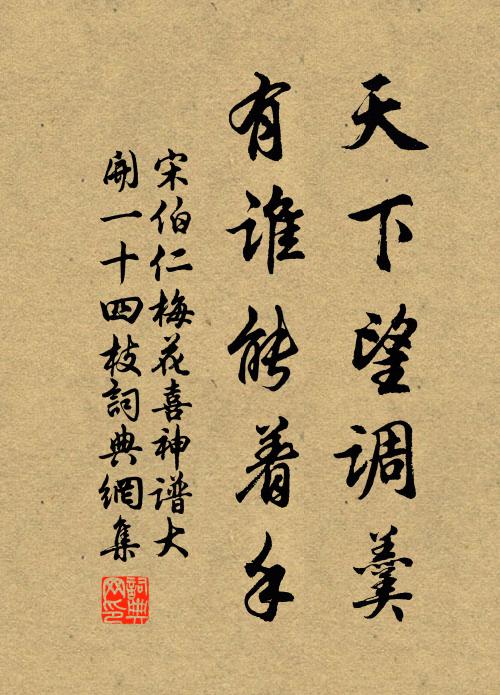 天下望调羹
有谁能着手
宋伯仁梅花喜神谱大
開一十四枝詞典網集
詞典网印